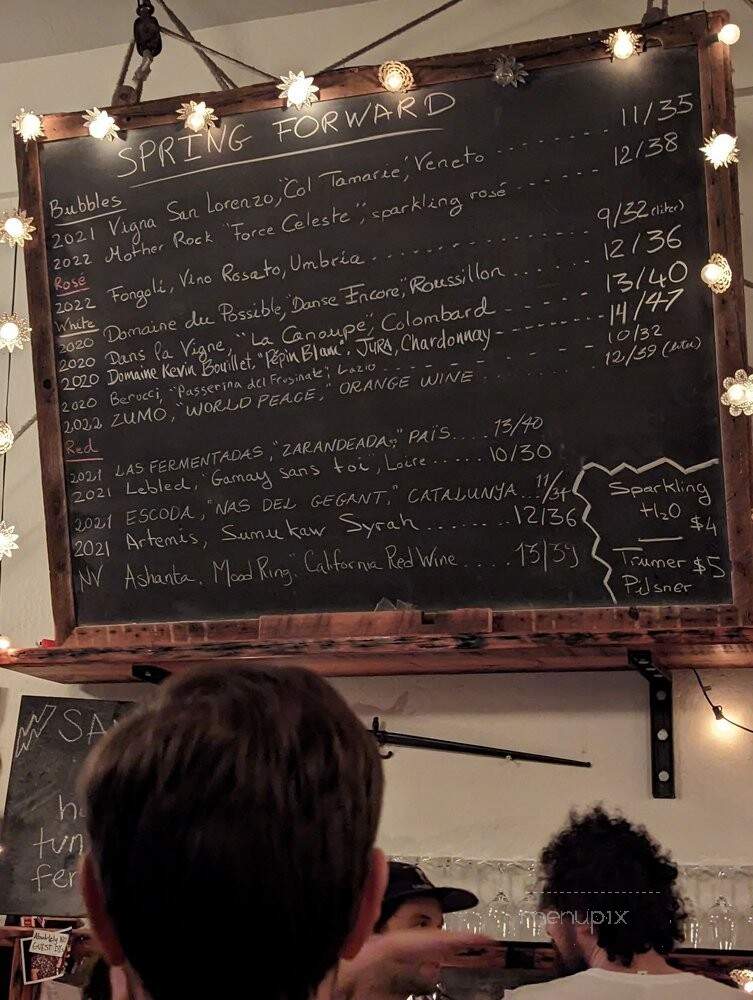 SPRING FORWARD
Bubbles
2021 Vigna San Lorenzo, "Col Tamarie," Veneto ------- 11/35
2022 Mother Rock "Force Celeste", sparkling rosé ------ 12/38
Rosé
2022 Fongoli, Vino Rosato, Umbria ---------- 9/32 (liter)
White
2020 Domaine du Possible, "Danse Encore," Roussillon ---- 12/36
2020 Dans la Vigne, "La Canoupe," Colombard ------ 13/40
2020 Domaine Kevin Bouillet, "Pépin Blanc", JURA, Chardonnay ------ 14/47
2020 Berucci, "Passerina del Frusinate", Lazio ------- 10/32
2022 ZUMO, "WORLD PEACE," ORANGE WINE ....... 12/39 (liter)
Red
2021 LAS FERMENTADAS, "ZARANDEADA," PAÍS.... 13/40
2021 Lebled, "Gamay sans toi", Loire ... 10/30
2021 ESCODA, "NAS DEL GEGANT," CATALUNYA... 11/34
2021 Artemis, Sumukaw Syrah ....... 12/36
NV Ashanta, "Mood Ring," California Red Wine ..... 13/39
Sparkling
H2O
$4
Trumer $5
Pilsner
SA
tun
fer
Absolutely No
GUEST DJ's
menupix